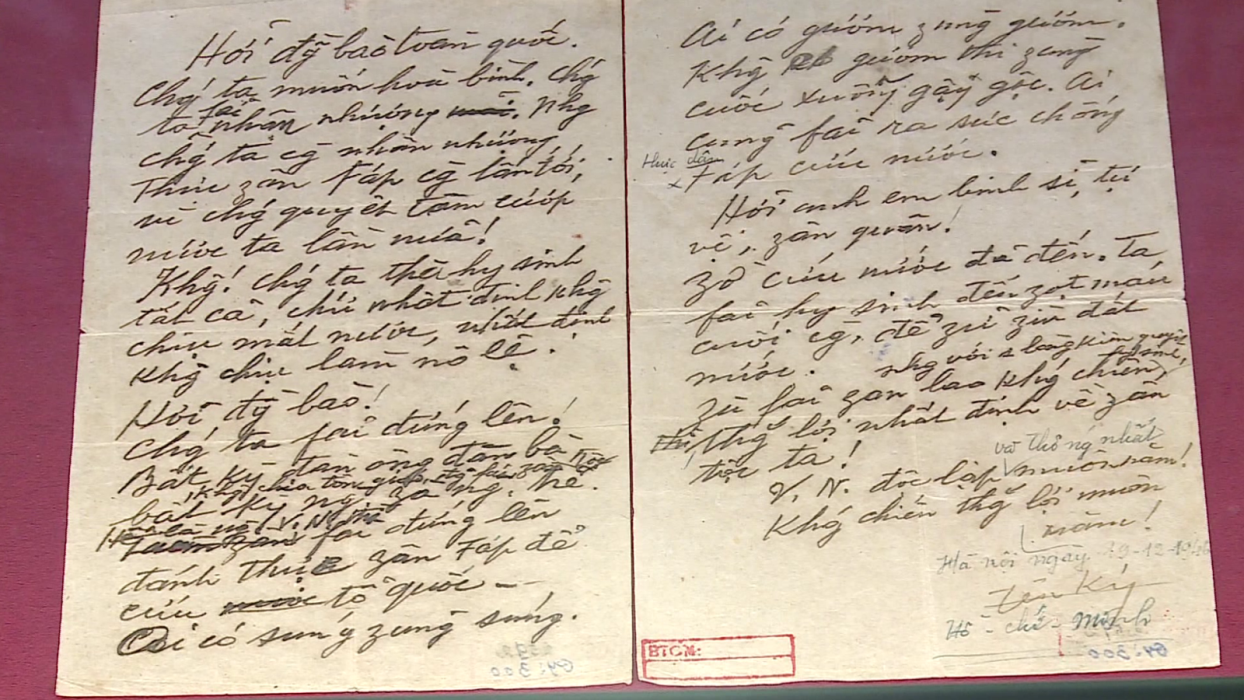 Hỡi đồng bào toàn quốc.
Chúg ta muốn hoà bình, chúg
ta fải nhân nhượng. Nhg
chúg ta cg nhân nhượng,
thực zân Fáp cg lấn tới,
vì chúg quyết tâm cướp
nước ta lần nữa!
Khg! chúg ta thà hy sinh
tất cả, chứ nhất định khg
chịu mất nước, nhất định
khg chịu làm nô lệ.
Hỡi đồng bào!
Chúg ta fải đứng lên!
Bất kỳ đàn ông đàn bà,
bất kỳ ng zà ng trẻ.
Hễ là ng V.N. thì
fải đứng lên
đánh thực zân Fáp để
cứu nước tổ quốc –
Ai có súng zùng súng.
Ai có gươm zùng gươm.
Khg có gươm thì zùng
cuốc xuổng gậy gộc. Ai
cũng fải ra sức chống
thực dân
x Fáp cứu nước.
Hỡi anh em binh sĩ, tự
vệ, zân quân!
Zờ cứu nước đã đến. Ta
fải hy sinh đến zọt máu
cuối cg, để zữ zìn đất
nước.
Zù fải zan lao khág chiến,
nhg với 1 lòng kiên quyết
hy sinh,
thắg lợi nhất định về zân
tộc ta!
và thống nhất
V.N. độc lập muôn năm!
Khág chiến thắg lợi muôn
năm!
Hà nội ngày 19-12-1946
Hồ-chí-Minh
BTCM:
04:300
04:300